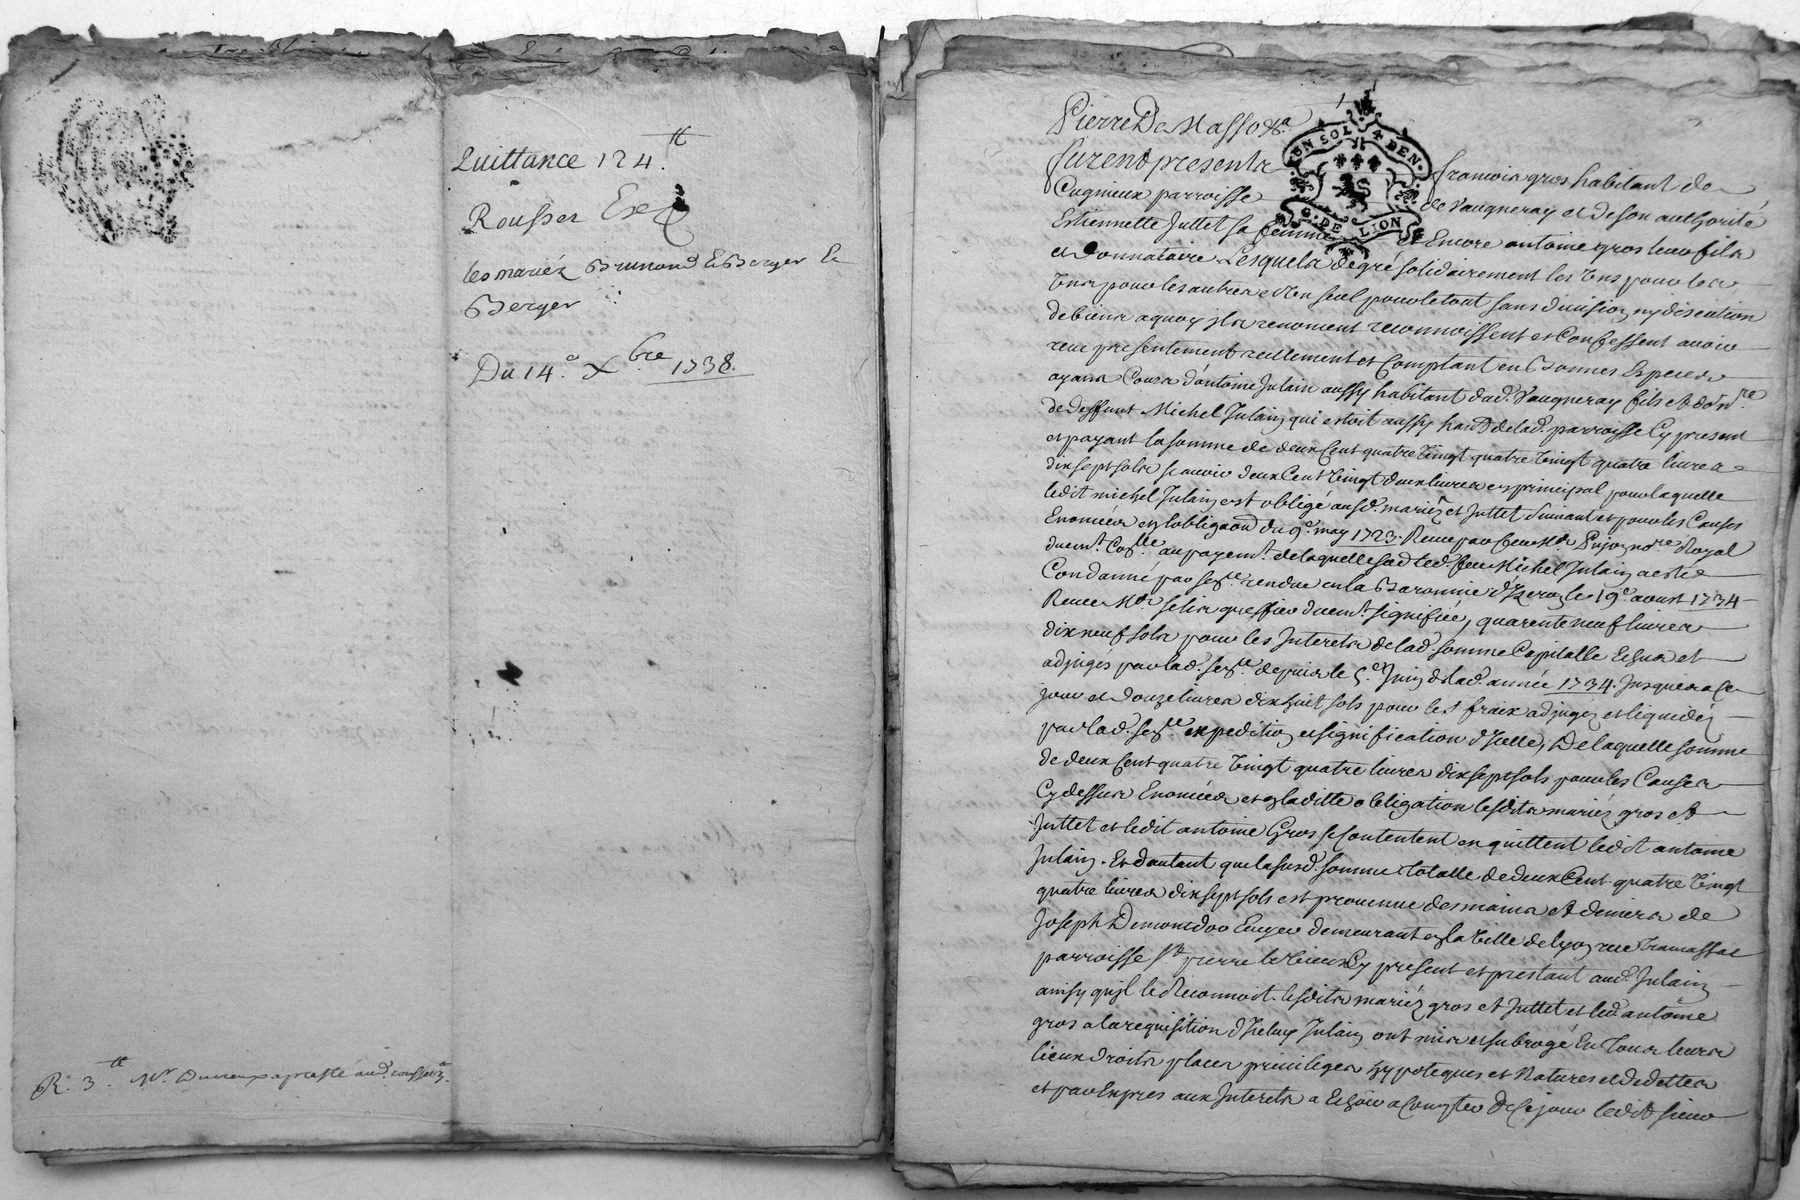 Quittance 124 ₶.
Rousset
les mariéz Brunand & Berger &
Berger
Du 14.e Xbre 1738.
R. 3 ₶.
Pierre De Masso &a.
UN SOL 4 DEN.
G. DE LION
Furent presents francois gros habitant de
Cugnieux parroisse de Vaugneray et de son authorité
Estiennette Juttet sa femme et Encore antoine gros leur fils
et Donnataire Lesquels de gré solidairement les Uns pour les
Uns pour les autres et Un seul pour le tout sans division ny discution
de biens a quoy ils renoncent reconnoissent et Confessent avoir
receu presentement reellement et Comptant en Bonnes Especes
ayans Cours d'antoine Julain aussy habitant dud. Vaugneray fils et don.re
de Deffunt Michel Julain qui estoit aussy hant de lad. parroisse Cy present
et payant la somme de deux Cent quatre Vingt quatre Vingt quatre livres
dix sept sols scavoir deux Cent Vingt deux livres en principal pour laquelle
ledit michel Julain est obligé ausd. mariéz et Juttet suivant et pour les Causes
Enoncées en l'obligaon du 9.e may 1723. Receue par feu Me Pujo no.re Royal
duemt. au payemt. de laquelle led. feu Michel Julain a esté
Condamné par sence rendue en la Baronnie d'Izeron le 19.e aoust 1734
Receue Me greffier duemt. signifiée, quarente neuf livres
dix neuf sols pour les Interets de lad. somme Capitalle Echus et
adjugés par lad. sence depuis le 5.e Juin de lad. année 1734. Jusques a Ce
jour et douze livres dix huit sols pour les fraix adjugez et liquidéz
par lad. sence expedition et signification d'Icelle, De laquelle somme
de deux Cent quatre Vingt quatre livres dix sept sols pour les Causes
Cy dessus Enoncées et en laditte obligation lesdits mariéz gros et
Juttet et ledit antoine Gros se Contentent en quittent ledit antoine
Julain. Et d'autant que la susd. somme totalle de deux Cent quatre Vingt
quatre livres dix sept sols est provenue des mains et deniers de
Joseph Demontdor Ecuyer demeurant en la Ville de lyon rue Tramassac
parroisse St. pierre le Vieux Cy present et prestant aud. Julain
ainsy qu'jl le Reconnoit. lesdits mariéz gros et Juttet et led. antoine
gros a la requisition d'Iceluy Julain ont mis et subrogé En tous leurs
lieux droits places privileges hypoteques et Natures de dettes
et par Expres aux Interets a Echoir a Compter de Ce jour ledit sieur